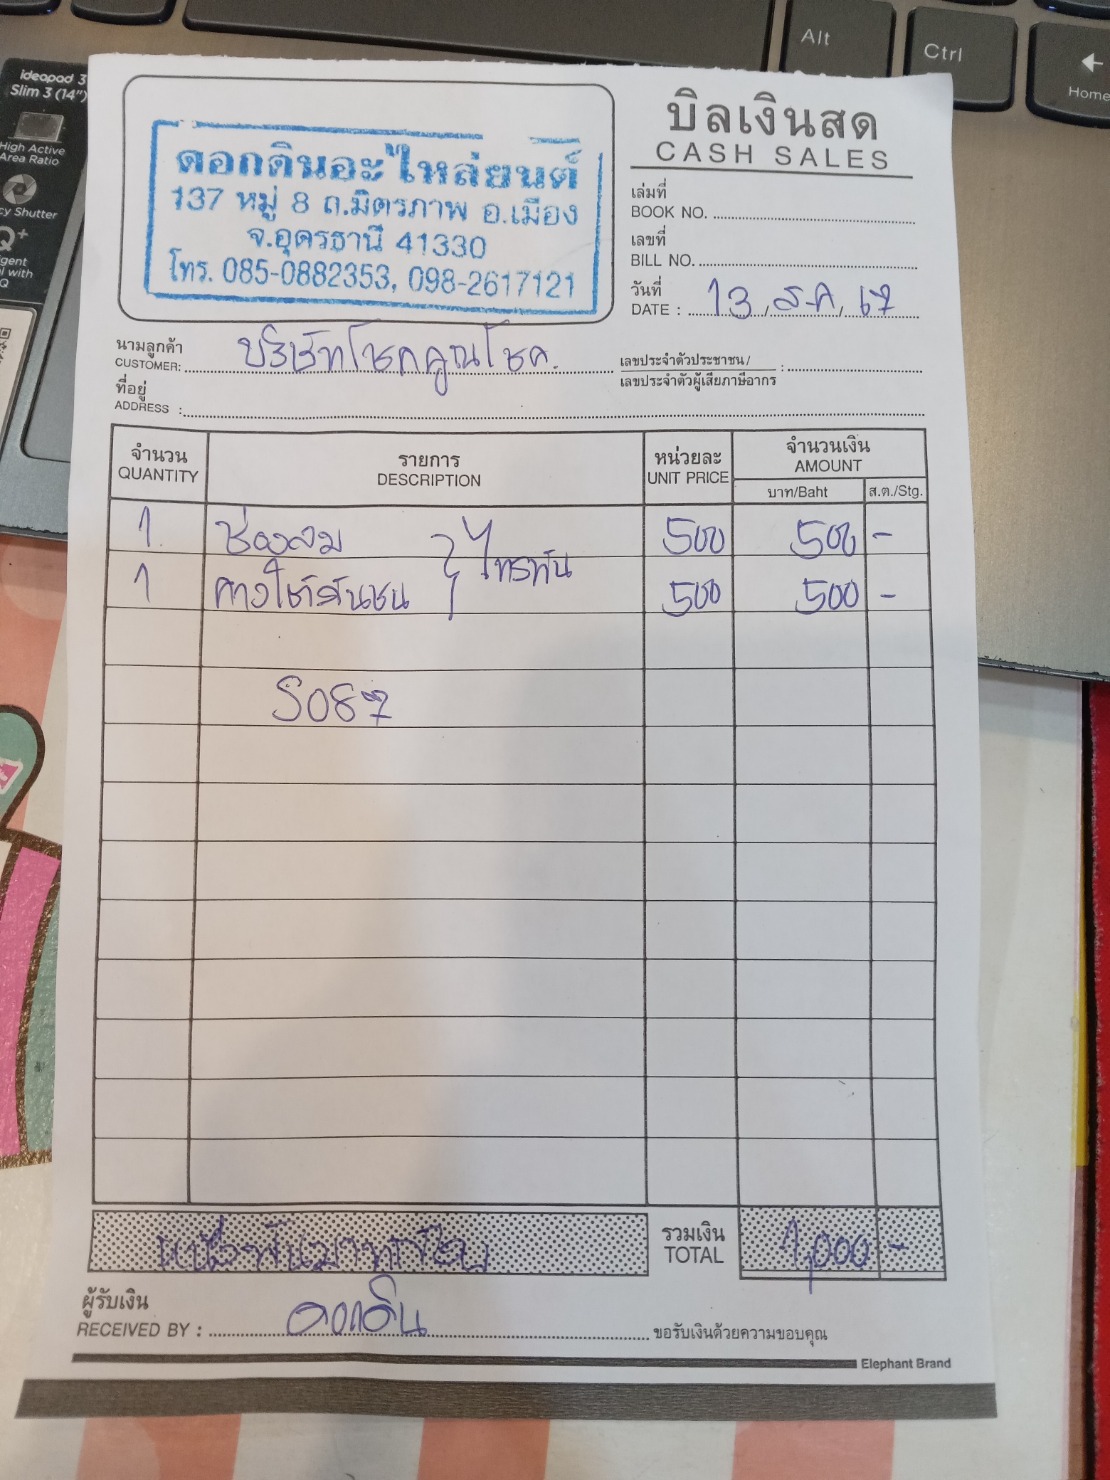 ideapad 3
Slim 3 (14")
High Active
Area Ratio
cy Shutter
Alt
Ctrl
Home
บิลเงินสด
CASH SALES
ดอกดินอะไหล่ยนต์
137 หมู่ 8 ถ.มิตรภาพ อ.เมือง
จ.อุดรธานี 41330
โทร. 085-0882353, 098-2617121
เล่มที่
BOOK NO.
เลขที่
BILL NO.
วันที่
DATE : 13 / ส.ค. / 67
นามลูกค้า
CUSTOMER: บริษัทโชคคูณโชค
เลขประจำตัวประชาชน /
เลขประจำตัวผู้เสียภาษีอากร :
ที่อยู่
ADDRESS :
จำนวน รายการ หน่วยละ จำนวนเงิน
QUANTITY DESCRIPTION UNIT PRICE AMOUNT
บาท/Baht ส.ต./Stg.
1 ช่องลม 500 500 -
ไทรทัน
1 คางใต้กันชน 500 500 -
หนึ่งพันบาทถ้วน รวมเงิน 1,000 -
TOTAL
ผู้รับเงิน
RECEIVED BY : ดอกดิน ขอรับเงินด้วยความขอบคุณ
Elephant Brand